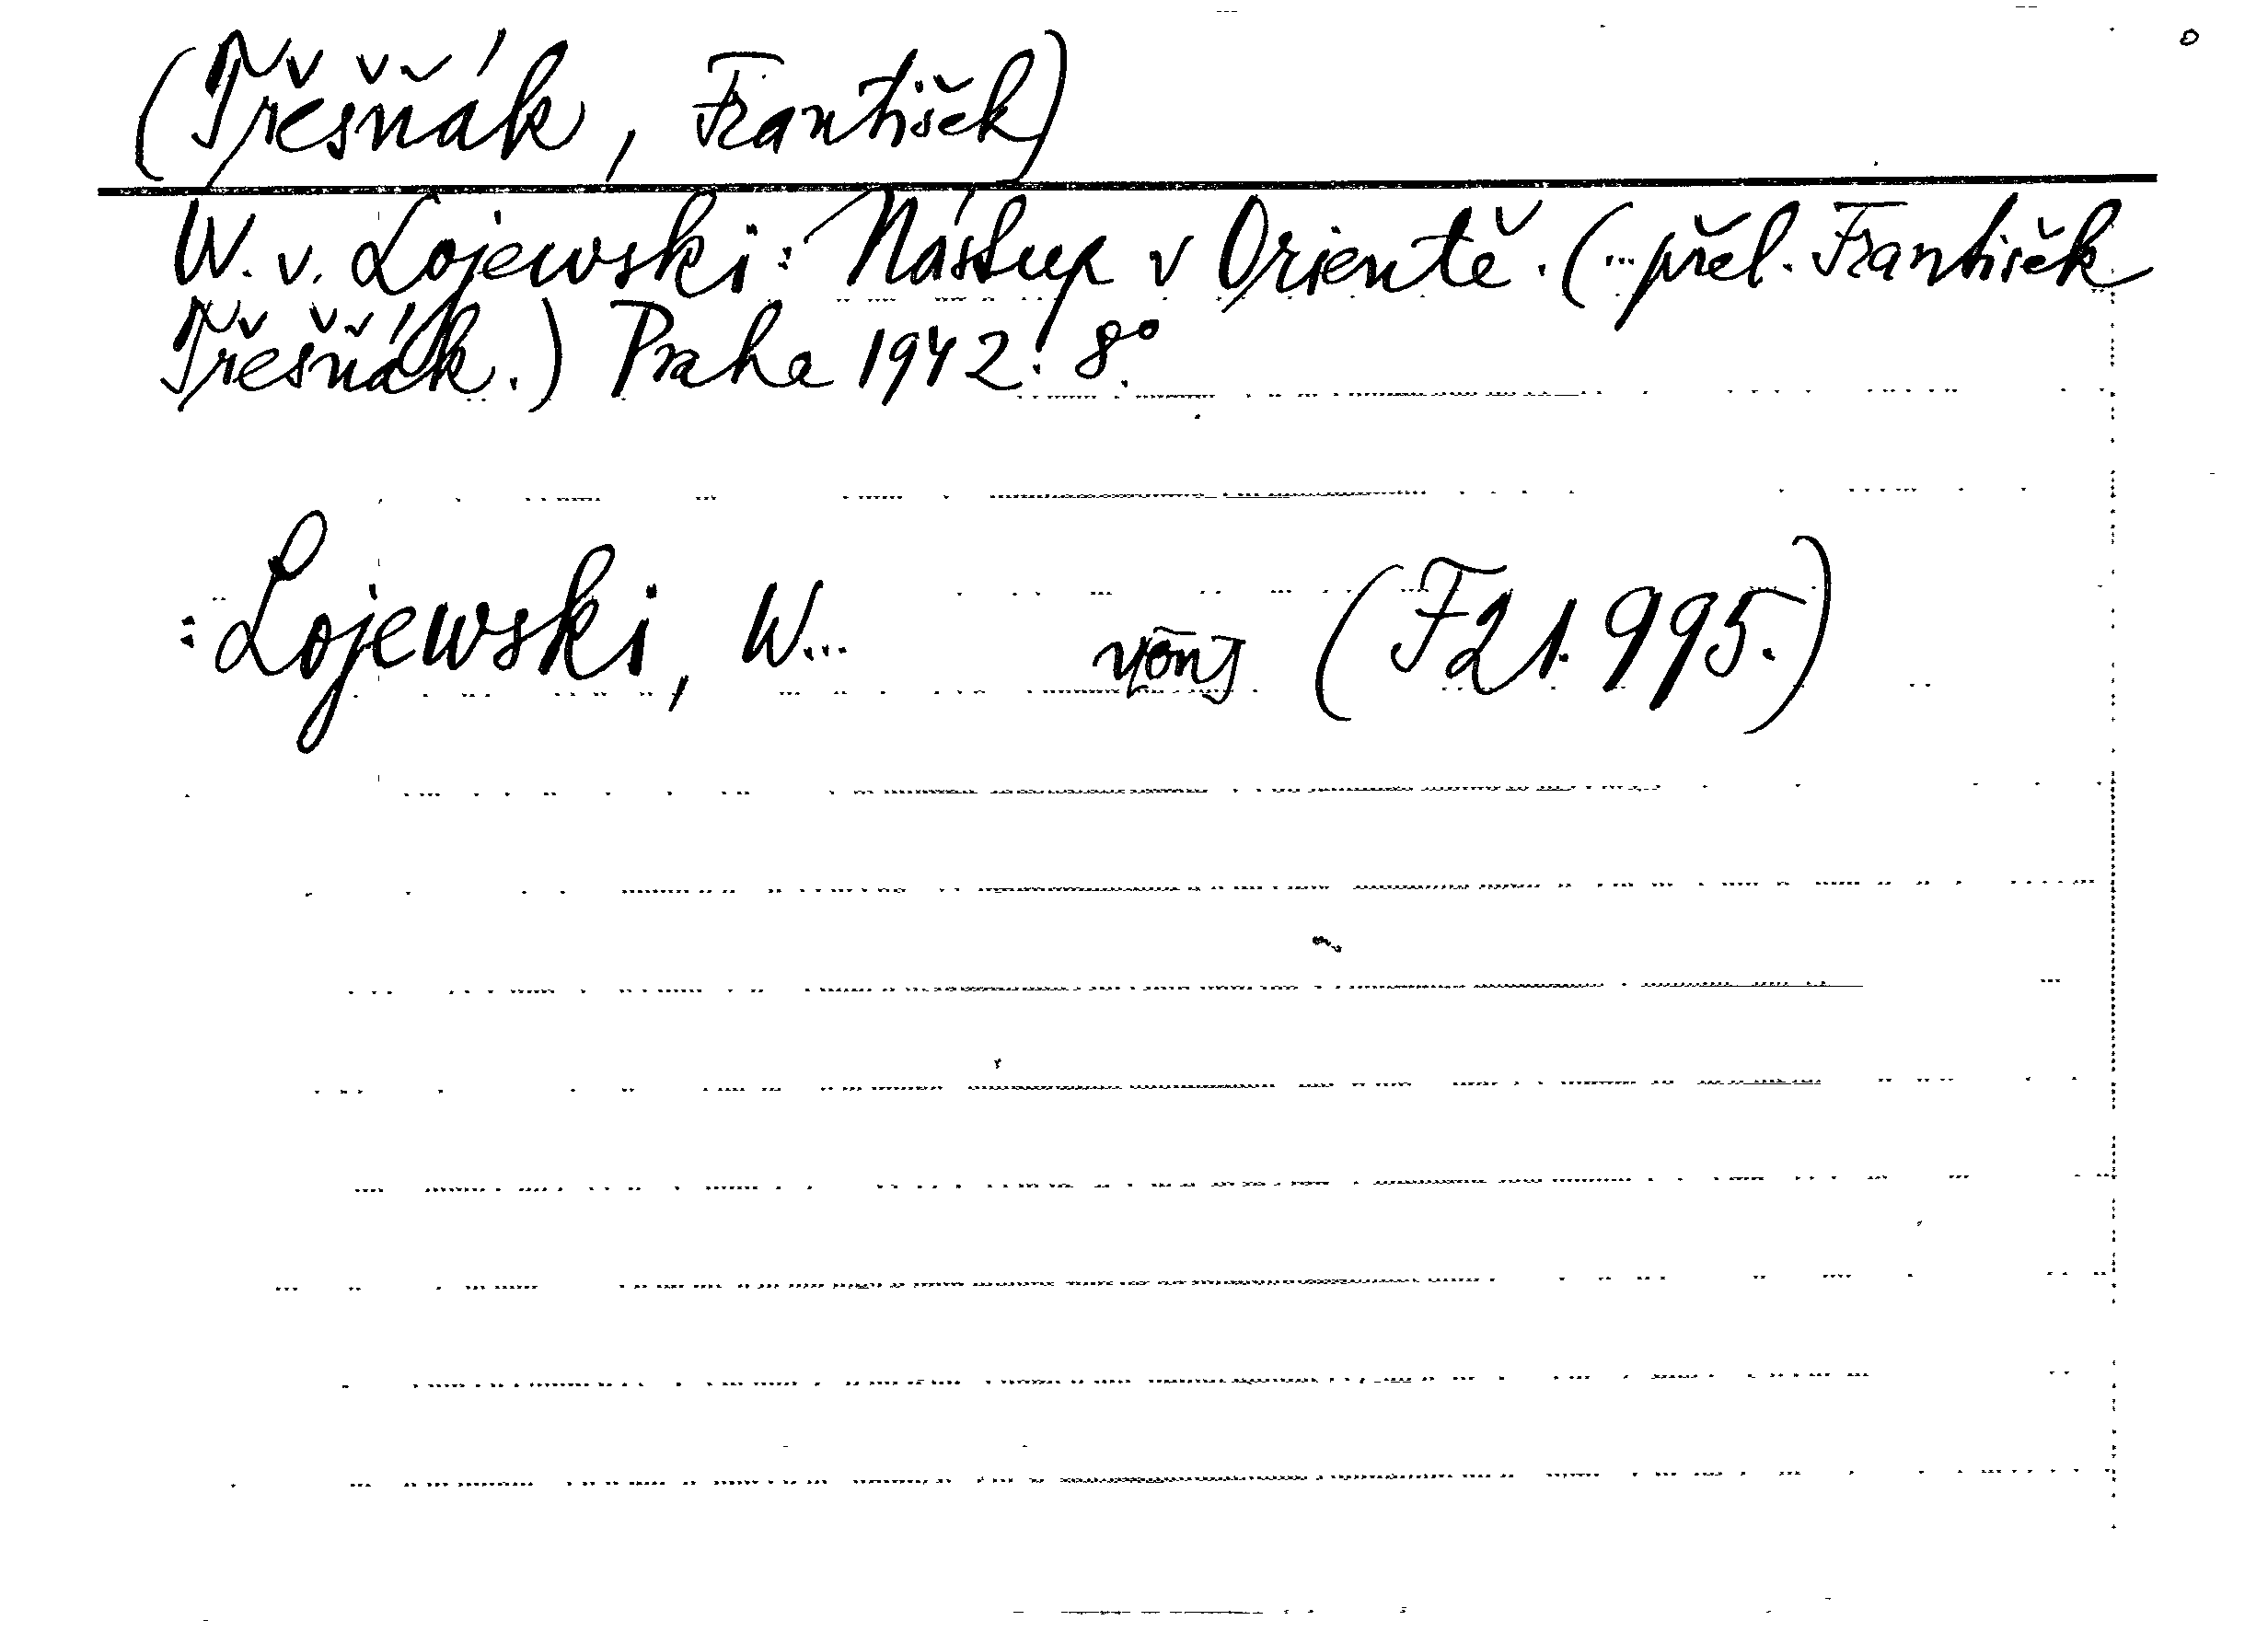 (Třešňák, František)
W. v. Lojewski: Nástup v Orientě. (...přel. František
Třešňák.) Praha 1942. 8°.
:Lojewski, W... (F21.995.)